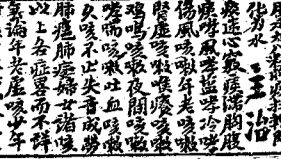 化為水 主治
痰迷心竅痰滿胸腹
痰哮風哮藍哮冷哮
傷風咳嗽年老咳嗽
腎虛咳嗽喉癢咳嗽
鷄鳴咳嗽夜間咳嗽
哮喘咳嗽吐血咳嗽
久咳不止失音成癆
肺癰肺痿婦女諸咳
以上各症畧而不詳
無論年老虛咳少年